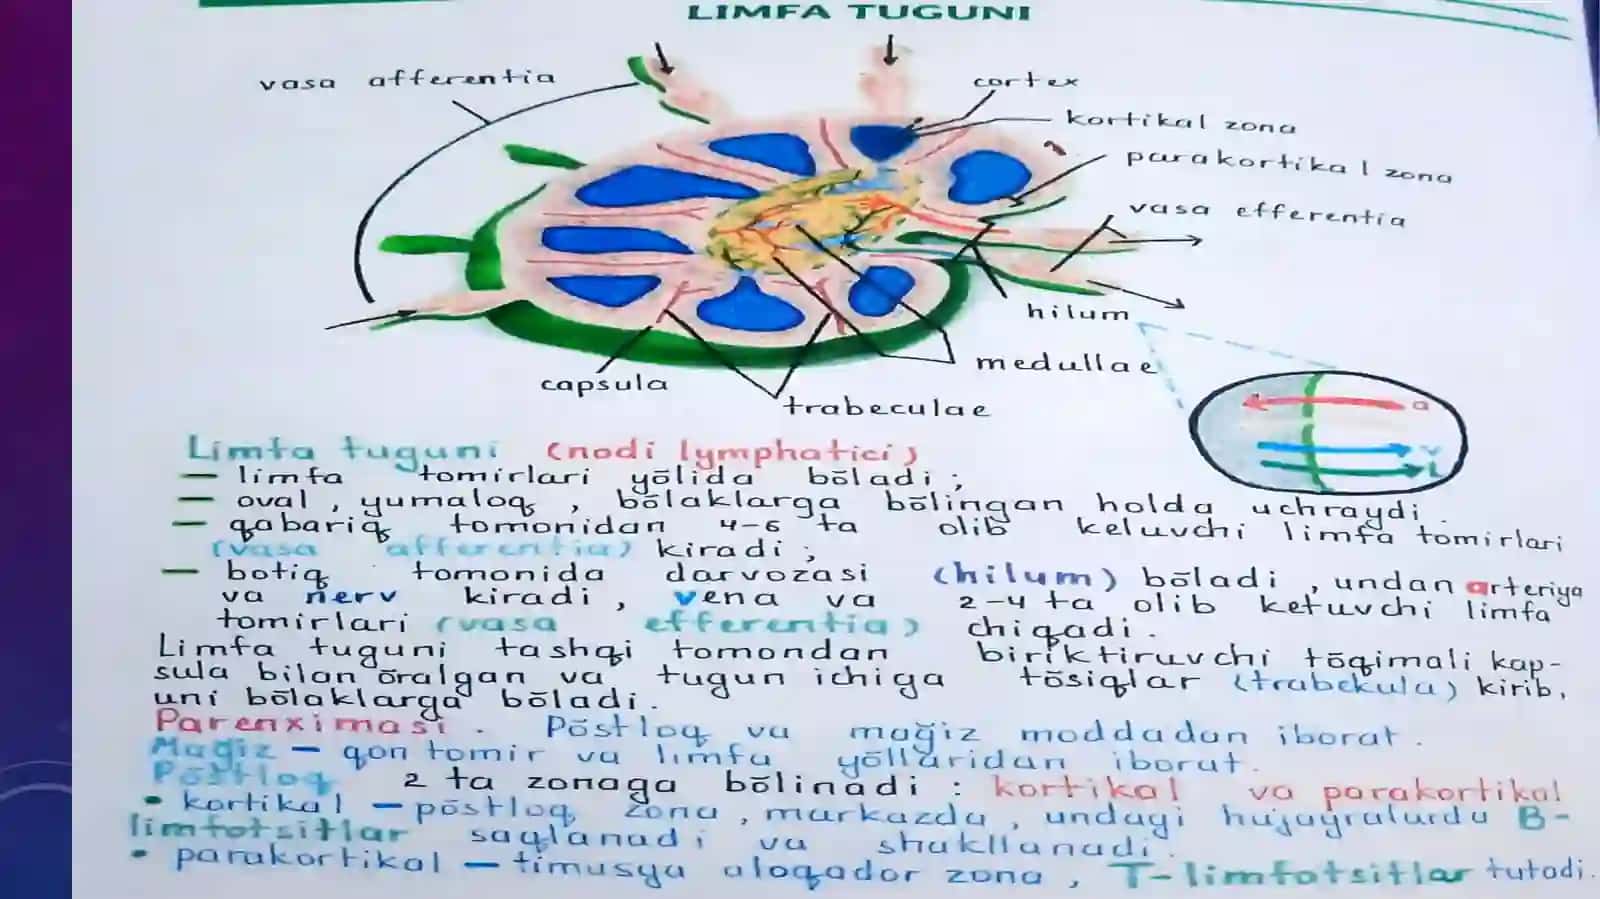 LIMFA TUGUNI
vasa afferentia
cortex
kortikal zona
parakortikal zona
vasa efferentia
hilum
medullae
capsula
trabeculae
a
v
L
Limfa tuguni (nodi lymphatici)
— limfa tomirlari yōlida bōladi ;
— oval , yumaloq , bōlaklarga bōlingan holda uchraydi .
— qabariq tomonidan 4-6 ta olib keluvchi limfa tomirlari
(vasa afferentia) kiradi ;
— botiq tomonida darvozasi (hilum) bōladi , undan arteriya
va nerv kiradi , vena va 2-4 ta olib ketuvchi limfa
tomirlari (vasa efferentia) chiqadi .
Limfa tuguni tashqi tomondan biriktiruvchi tōqimali kap-
sula bilan ōralgan va tugun ichiga tōsiqlar (trabekula) kirib,
uni bōlaklarga bōladi .
Parenximasi . Pōstloq va mağiz moddadan iborat .
Mağiz — qon tomir va limfa yōllaridan iborat.
Pōstloq 2 ta zonaga bōlinadi : kortikal va parakortikal
• kortikal — pōstloq zona , markazda , undagi hujayralarda B-
limfotsitlar saqlanadi va shakllanadi .
• parakortikal — timusga aloqador zona , T-limfotsitlar tutadi.